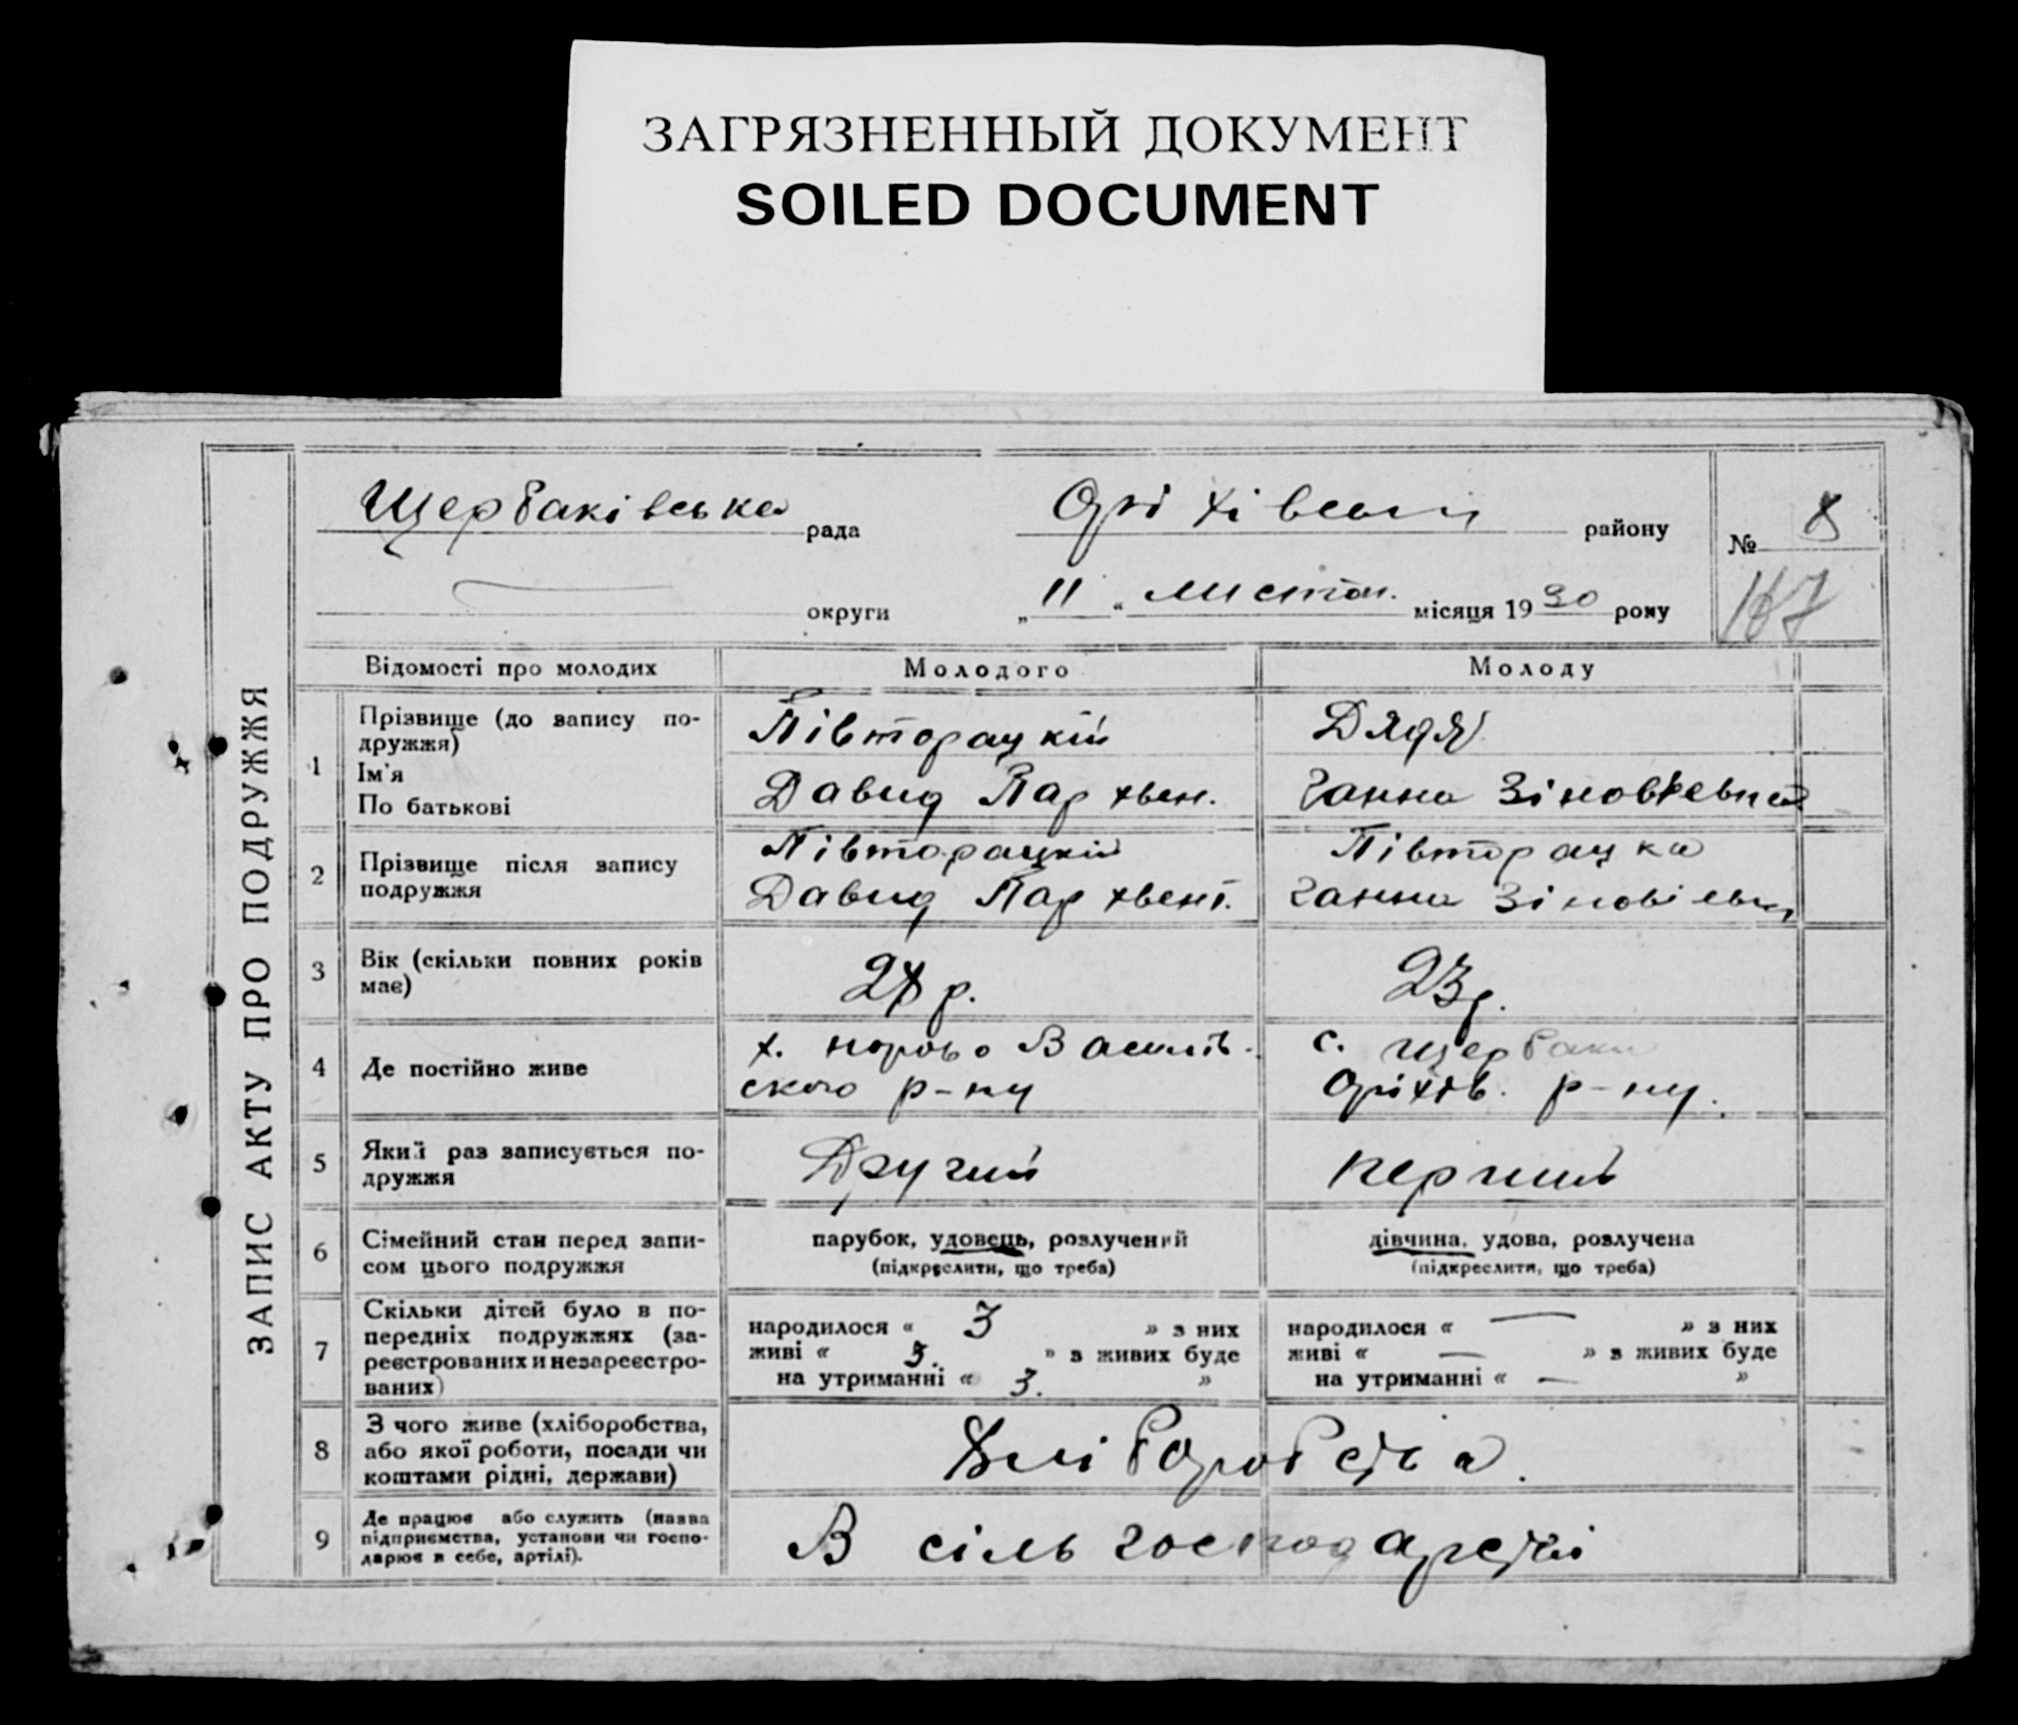 ЗАГРЯЗНЕННЫЙ ДОКУМЕНТ
SOILED DOCUMENT
ЗАПИС АКТУ ПРО ПОДРУЖЖЯ
Щербаківська рада
Оріхівськ району
№ 8
округи
„11“ листоп. місяця 1930 року
167
Відомості про молодих
Молодого
Молоду
1
Прізвище (до запису по-
дружжя)
Ім'я
По батькові
Півторацкій
Давид Пархвен.
Дядя
Ганна Зіновієвна
2
Прізвище після запису
подружжя
Півторацкій
Давид Пархвент.
Півторацка
Ганна Зіновієвн
3
Вік (скільки повних років
має)
28 р.
23 р.
4
Де постійно живе
х. Василів-
ського р-ну
с. Щербаки
Оріхів. р-ну.
5
Який раз записується по-
дружжя
Другий
перший
6
Сімейний стан перед запи-
сом цього подружжя
парубок, удовець, розлучений
(підкреслити, що треба)
дівчина, удова, розлучена
(підкреслити, що треба)
7
Скільки дітей було в по-
передніх подружжях (за-
реєстрованих и незареєстро-
ваних)
народилося « 3 » з них
живі « 3. » з живих буде
на утриманні « 3. »
народилося « — » з них
живі « — » з живих буде
на утриманні « — »
8
З чого живе (хліборобства,
або якої роботи, посади чи
коштами рідні, держави)
Хліборобства.
9
Де працює або служить (назва
підприємства, установи чи госпо-
дарює в себе, артілі).
В сільгосподарстві